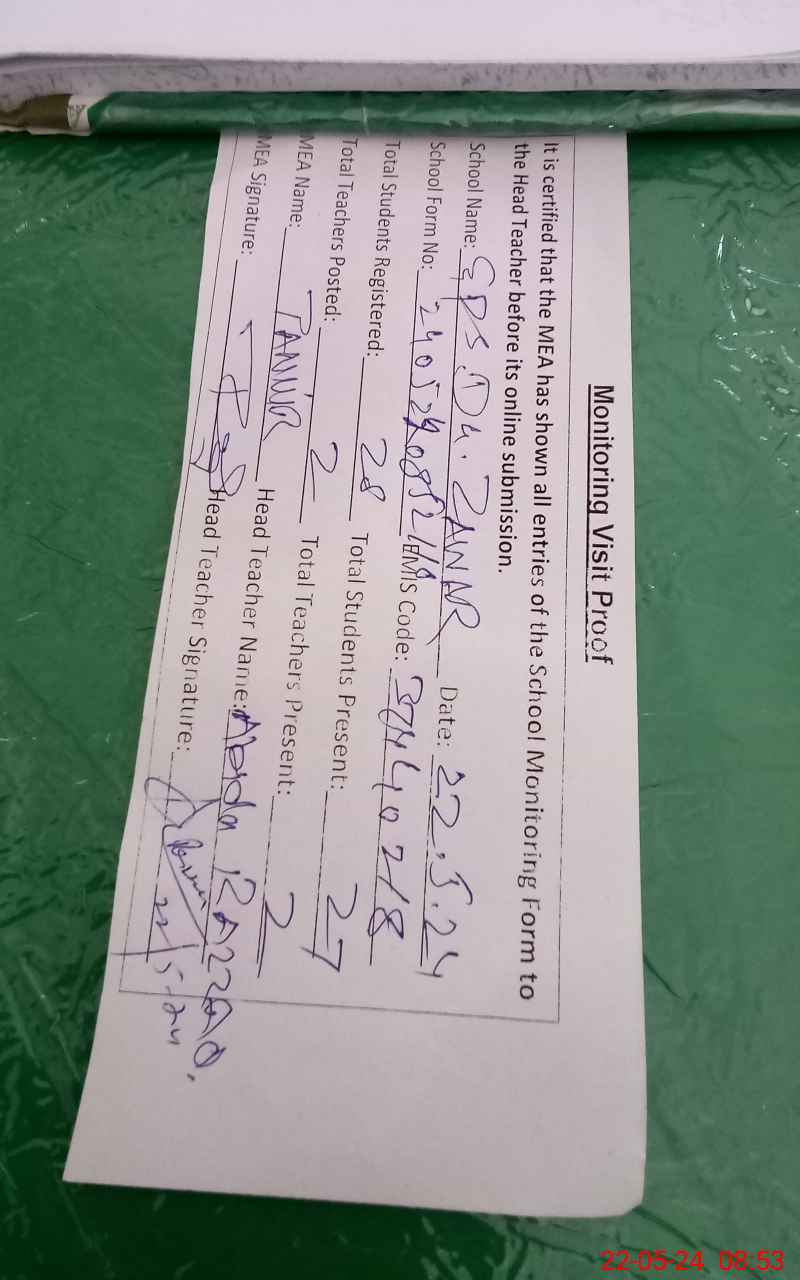 Monitoring Visit Proof
It is certified that the MEA has shown all entries of the School Monitoring Form to
the Head Teacher before its online submission.
School Name: GPS Date: 22.5.24
School Form No: EMIS Code:
Total Students Registered: 28 Total Students Present: 27
Total Teachers Posted: 2 Total Teachers Present: 2
MEA Name: Head Teacher Name:
MEA Signature: Head Teacher Signature:
22/5/24
22-05-24 08:53